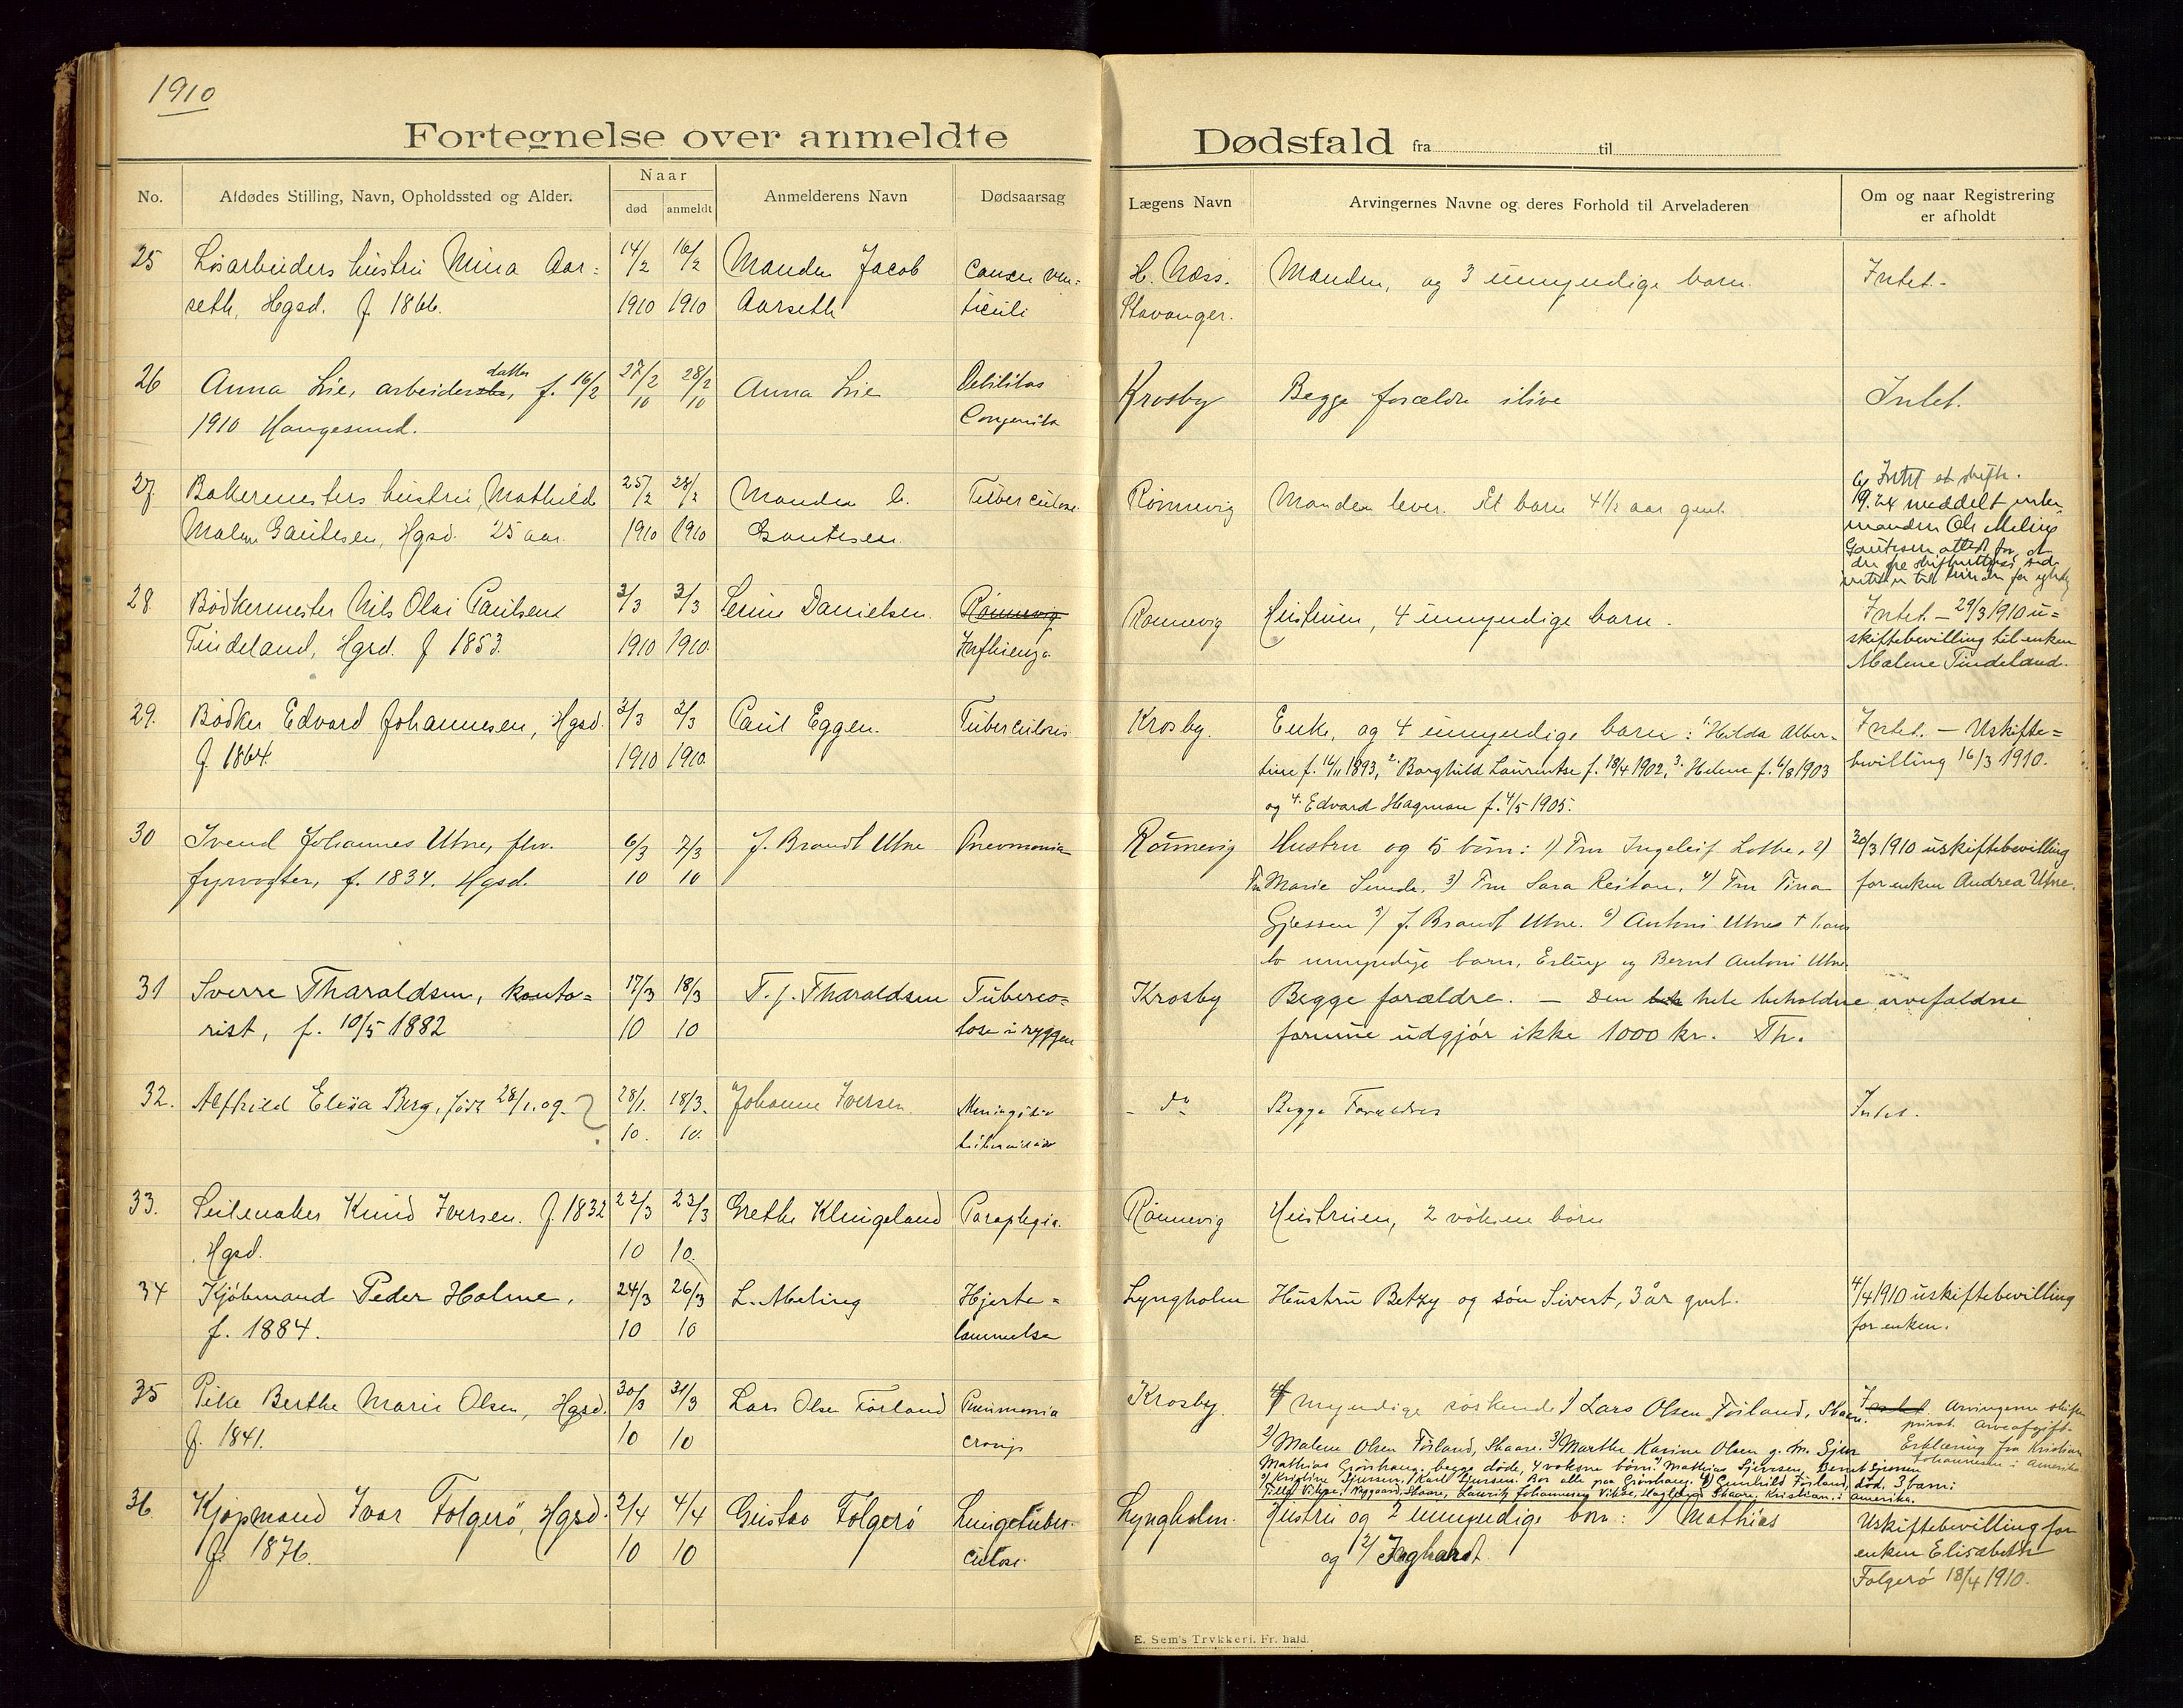 1910
Fortegnelse over anmeldte Dødsfald fra til
No. Afdødes Stilling, Navn, Opholdssted og Alder. Naar død anmeldt Anmelderens Navn Dødsaarsag Lægens Navn Arvingernes Navne og deres Forhold til Arveladeren Om og naar Registrering
er afholdt
25 Løsarbeiders hustru Mina Aar= 14/2 16/2 Manden Jacob Cancer ven= H. Næss. Manden, og 3 umyndige barn. Intet.-
seth, Hgsd. f. 1866. 1910 1910 Aarseth triculi Stavanger.
26 Anna Lie, arbeiders datter, f. 16/2 27/2 28/2 Anna Lie Debilitas Krosby Begge forældre ilive Intet.
1910 Haugesund. 10 10 Congenita
27. Bakermesters hustru, Mathilde 25/2 28/2 Manden Tuberculose. Rønnevig Manden lever. Et barn 4 1/2 aar gml. Intet
Malene Gautesen, Hgsd. 25 aar. 1910 1910 Gautesen. meddelt enke-
manden Ole Meling
Gautesen attest for, at
28. Bødkermester Nils Olai Paulsen 2/3 3/3 Serine Danielsen. Rønnevig Rønnevig Hustruen, 4 umyndige barn. Intet. - 29/3 1910 u=
Tindeland, Hgsd. f 1853. 1910 1910. Influenza skiftebevilling til enken
Malene Tindeland.
29. Bødker Edvard Johannesen, Hgsd. 2/3 3/3 Paul Eggen. Tuberculosis Krosby. Enke, og 4 umyndige barn: 1. Hilda Alber= Intet. - Uskifte=
f. 1864. 1910 1910. tine f. 16/11 1893, 2. Borghild Laurentse f. 18/4 1902, 3. Helene f. 6/8 1903 bevilling 16/3 1910.
og 4. Edvard Hagman f. 4/5 1905.
30 Svend Johannes Utne, fhv. 6/3 7/3 J. Brandt Utne Pnevmonia Rønnevig Hustru og 5 børn: 1) Fru Ingeleif Lothe, 2) 30/3 1910 uskiftebevilling
fyrvogter, f. 1834. Hgsd. 10 10 Fru Marie Sunde, 3) Fru Sara Reitan, 4) Fru Tina for enken Andrea Utne.
Gjessen 5) J. Brandt Utne. 6) Antoni Utnes † hans
to umyndige barn, Erling og Bernt Antoni Utne.
31 Sverre Tharaldsen, konto= 17/3 18/3 T. J. Tharaldsen Tuberco= Krosby Begge forældre. - Den hele beholdne arvefaldne
rist, f. 10/5 1882 10 10 lose i ryggen formue udgjør ikke 1000 kr. Th.
32. Alfhild Elisa Berg, født 28/1. 09. ? 28/1. 18/3. Johanne Iversen Meningitis - do Begge Forældre Intet.
10. 10. tuberculosis
33. Seilmaker Knud Iversen. f. 1832 22/3 23/3 Grethe Klingeland Paraplegia. Rønnevig Hustruen, 2 voksne børn
Hgsd. 10 10.
34 Kjøbmand Peder Holme, 24/3 26/3 L. Meling Hjerte= Lyngholm Hustru Betzy og søn Sivert, 3 år gml. 4/4 1910 uskiftebevilling
f. 1884. 10 10 lammelse for enken.
35 Pike Berthe Marie Olsen, Hgsd. 30/3 31/3 Lars Olsen Førland Pneumonia Krosby. 4 myndige søskende 1) Lars Olsen Førland, Skaare. Intet. Arvingerne skifter
f. 1841. 10 10 croup. 2) Malene Olsen Førland, Skaare. 3) Marthe Karine Olsen g. m. Sjur privat. Arveafgift.
Mathias Grønhaug, begge døde, 4 voksne børn: Mathias Sjursen, Bernt Sjursen Erklæring fra Kristian
Kristine Sjursen, Karl Sjursen. Bor alle paa Grønhaug. 4) Gunhild Førland, død. 3 barn: Johannesen i Amerika
Vikse, Nygaard, Skaare, Lauritz Johannesen Vikse, Skaare. Kristian, i Amerika.
36. Kjøpmand Ivar Folgerø, Hgsd. 2/4 4/4 Gustav Folgerø Lungetuber- Lyngholm. Hustru og 2 umyndige børn: 1) Mathias Uskiftebevilling for
f. 1876. 10 10 culose. og 2) Inghardt enken Elisabeth
Folgerø 18/4 1910.
E. Sem's Trykkeri. Fr. hald.